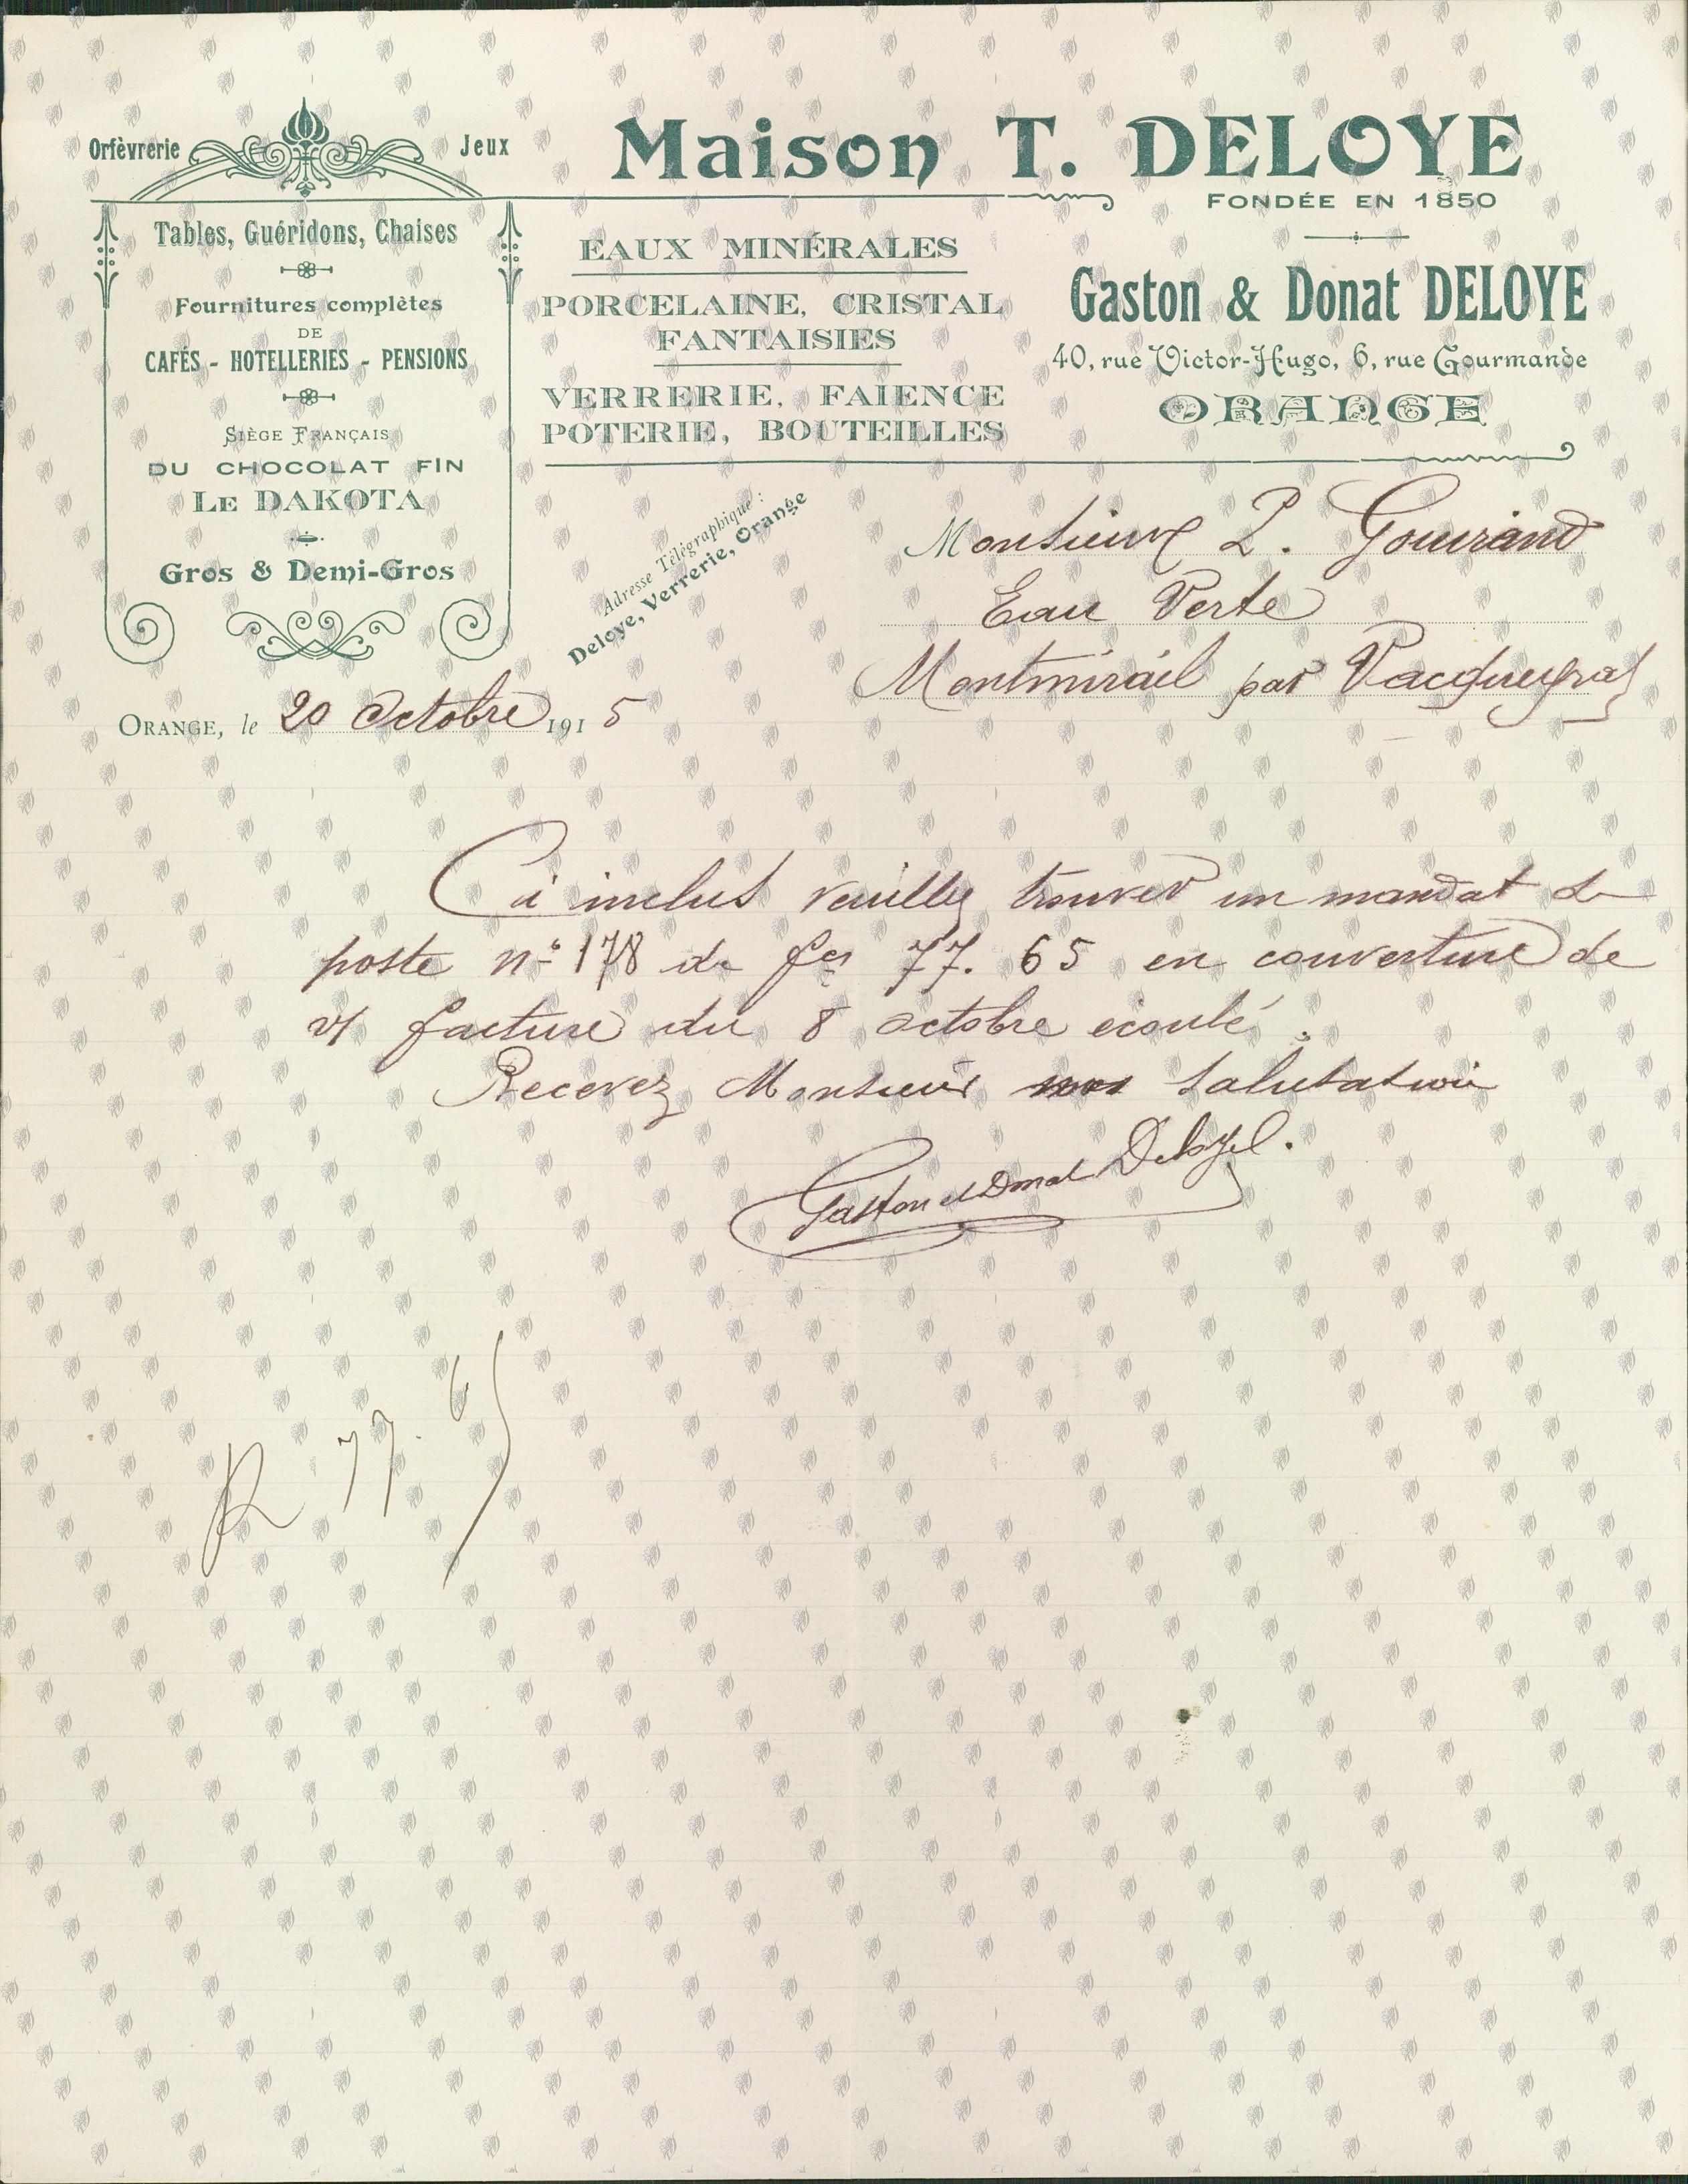 Orfèvrerie Jeux
Tables, Guéridons, Chaises
Fournitures complètes
DE
CAFÉS - HOTELLERIES - PENSIONS
SIÈGE FRANÇAIS
DU CHOCOLAT FIN
LE DAKOTA
Gros & Demi-Gros
Maison T. DELOYE
FONDÉE EN 1850
EAUX MINÉRALES
PORCELAINE, CRISTAL
FANTAISIES
VERRERIE, FAIENCE
POTERIE, BOUTEILLES
Gaston & Donat DELOYE
40, rue Victor-Hugo, 6, rue Gourmande
ORANGE
Adresse Télégraphique :
Deloye, Verrerie, Orange
Monsieur L. Gourand
Eau Verte
Montmirail par Vacqueyras
ORANGE, le 20 Octobre 1915
Ci inclus veuillez trouver un mandat de
poste n° 178 de fcs 77.65 en couverture de
v/ facture du 8 octobre écoulé.
Recevez Monsieur nos salutations
Gaston et Donat Deloye.
R 77.65